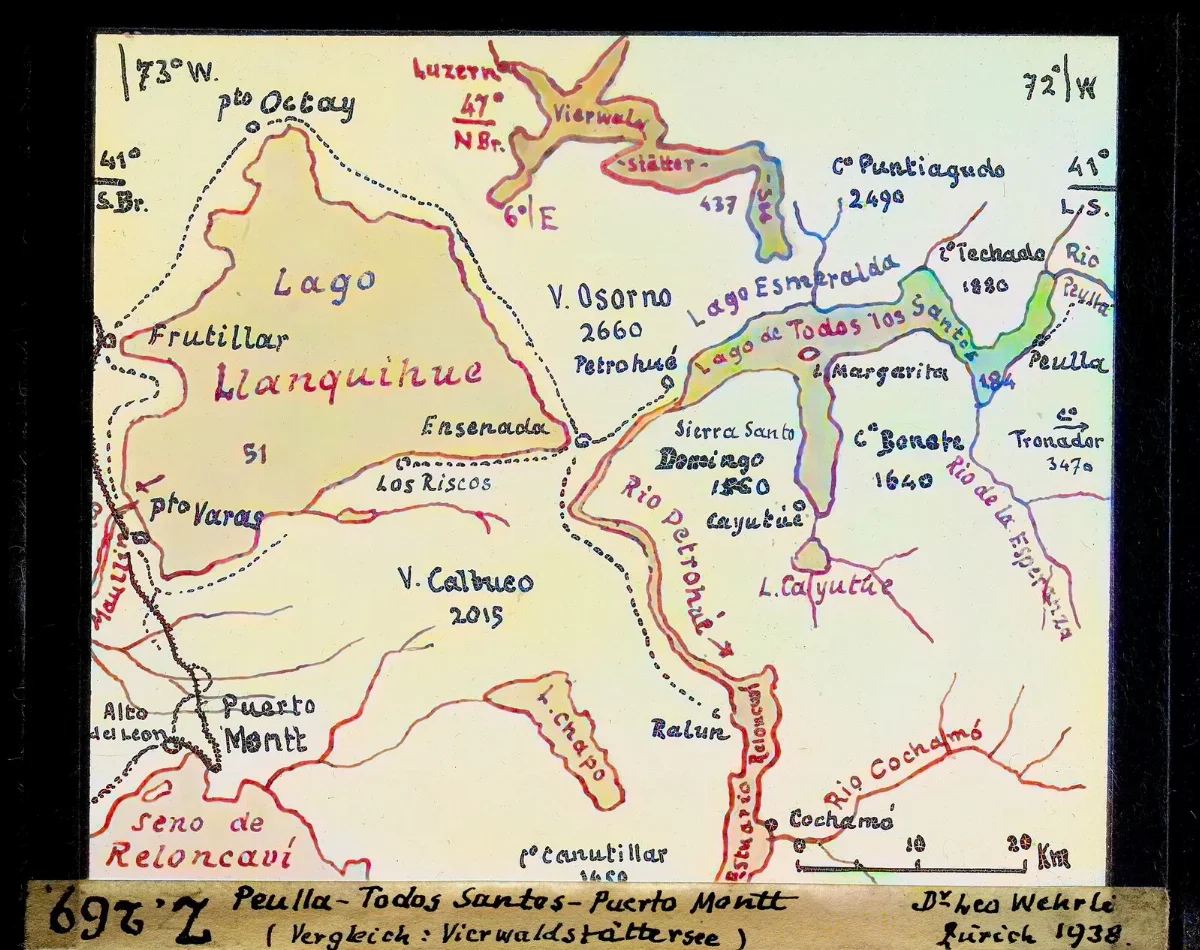 73° W.
72° W
pto Octay
Luzern
47°
N Br.
Vierwald
-stätter-
See
437
6° E
41°
S. Br.
Co Puntiagudo
2490
41°
L. S.
Lago
Llanquihue
51
Frutillar
V. Osorno
2660
Petrohué
Lago Esmeralda
Lago de Todos los Santos
184
I. Margarita
Co Techado
1880
Rio
Peulla
Peulla
Ensenada
Los Riscos
Sierra Santo
Domingo
1560
Co Bonete
1640
Co
Tronador
3470
Pto Varas
Maullin
Rio Petrohué
Cayutúe
L. Cayutúe
Rio de la Esperanza
V. Calbuco
2015
Alto
del Leon
Puerto
Montt
L. Chapo
Ralún
Estuario Reloncaví
Rio Cochamó
Cochamó
Seno de
Reloncaví
Co Canutillar
0 10 20 Km
Z. 269.
Peulla - Todos Santos - Puerto Montt
(Vergleich: Vierwaldstättersee)
Dr Leo Wehrli
Zürich 1938